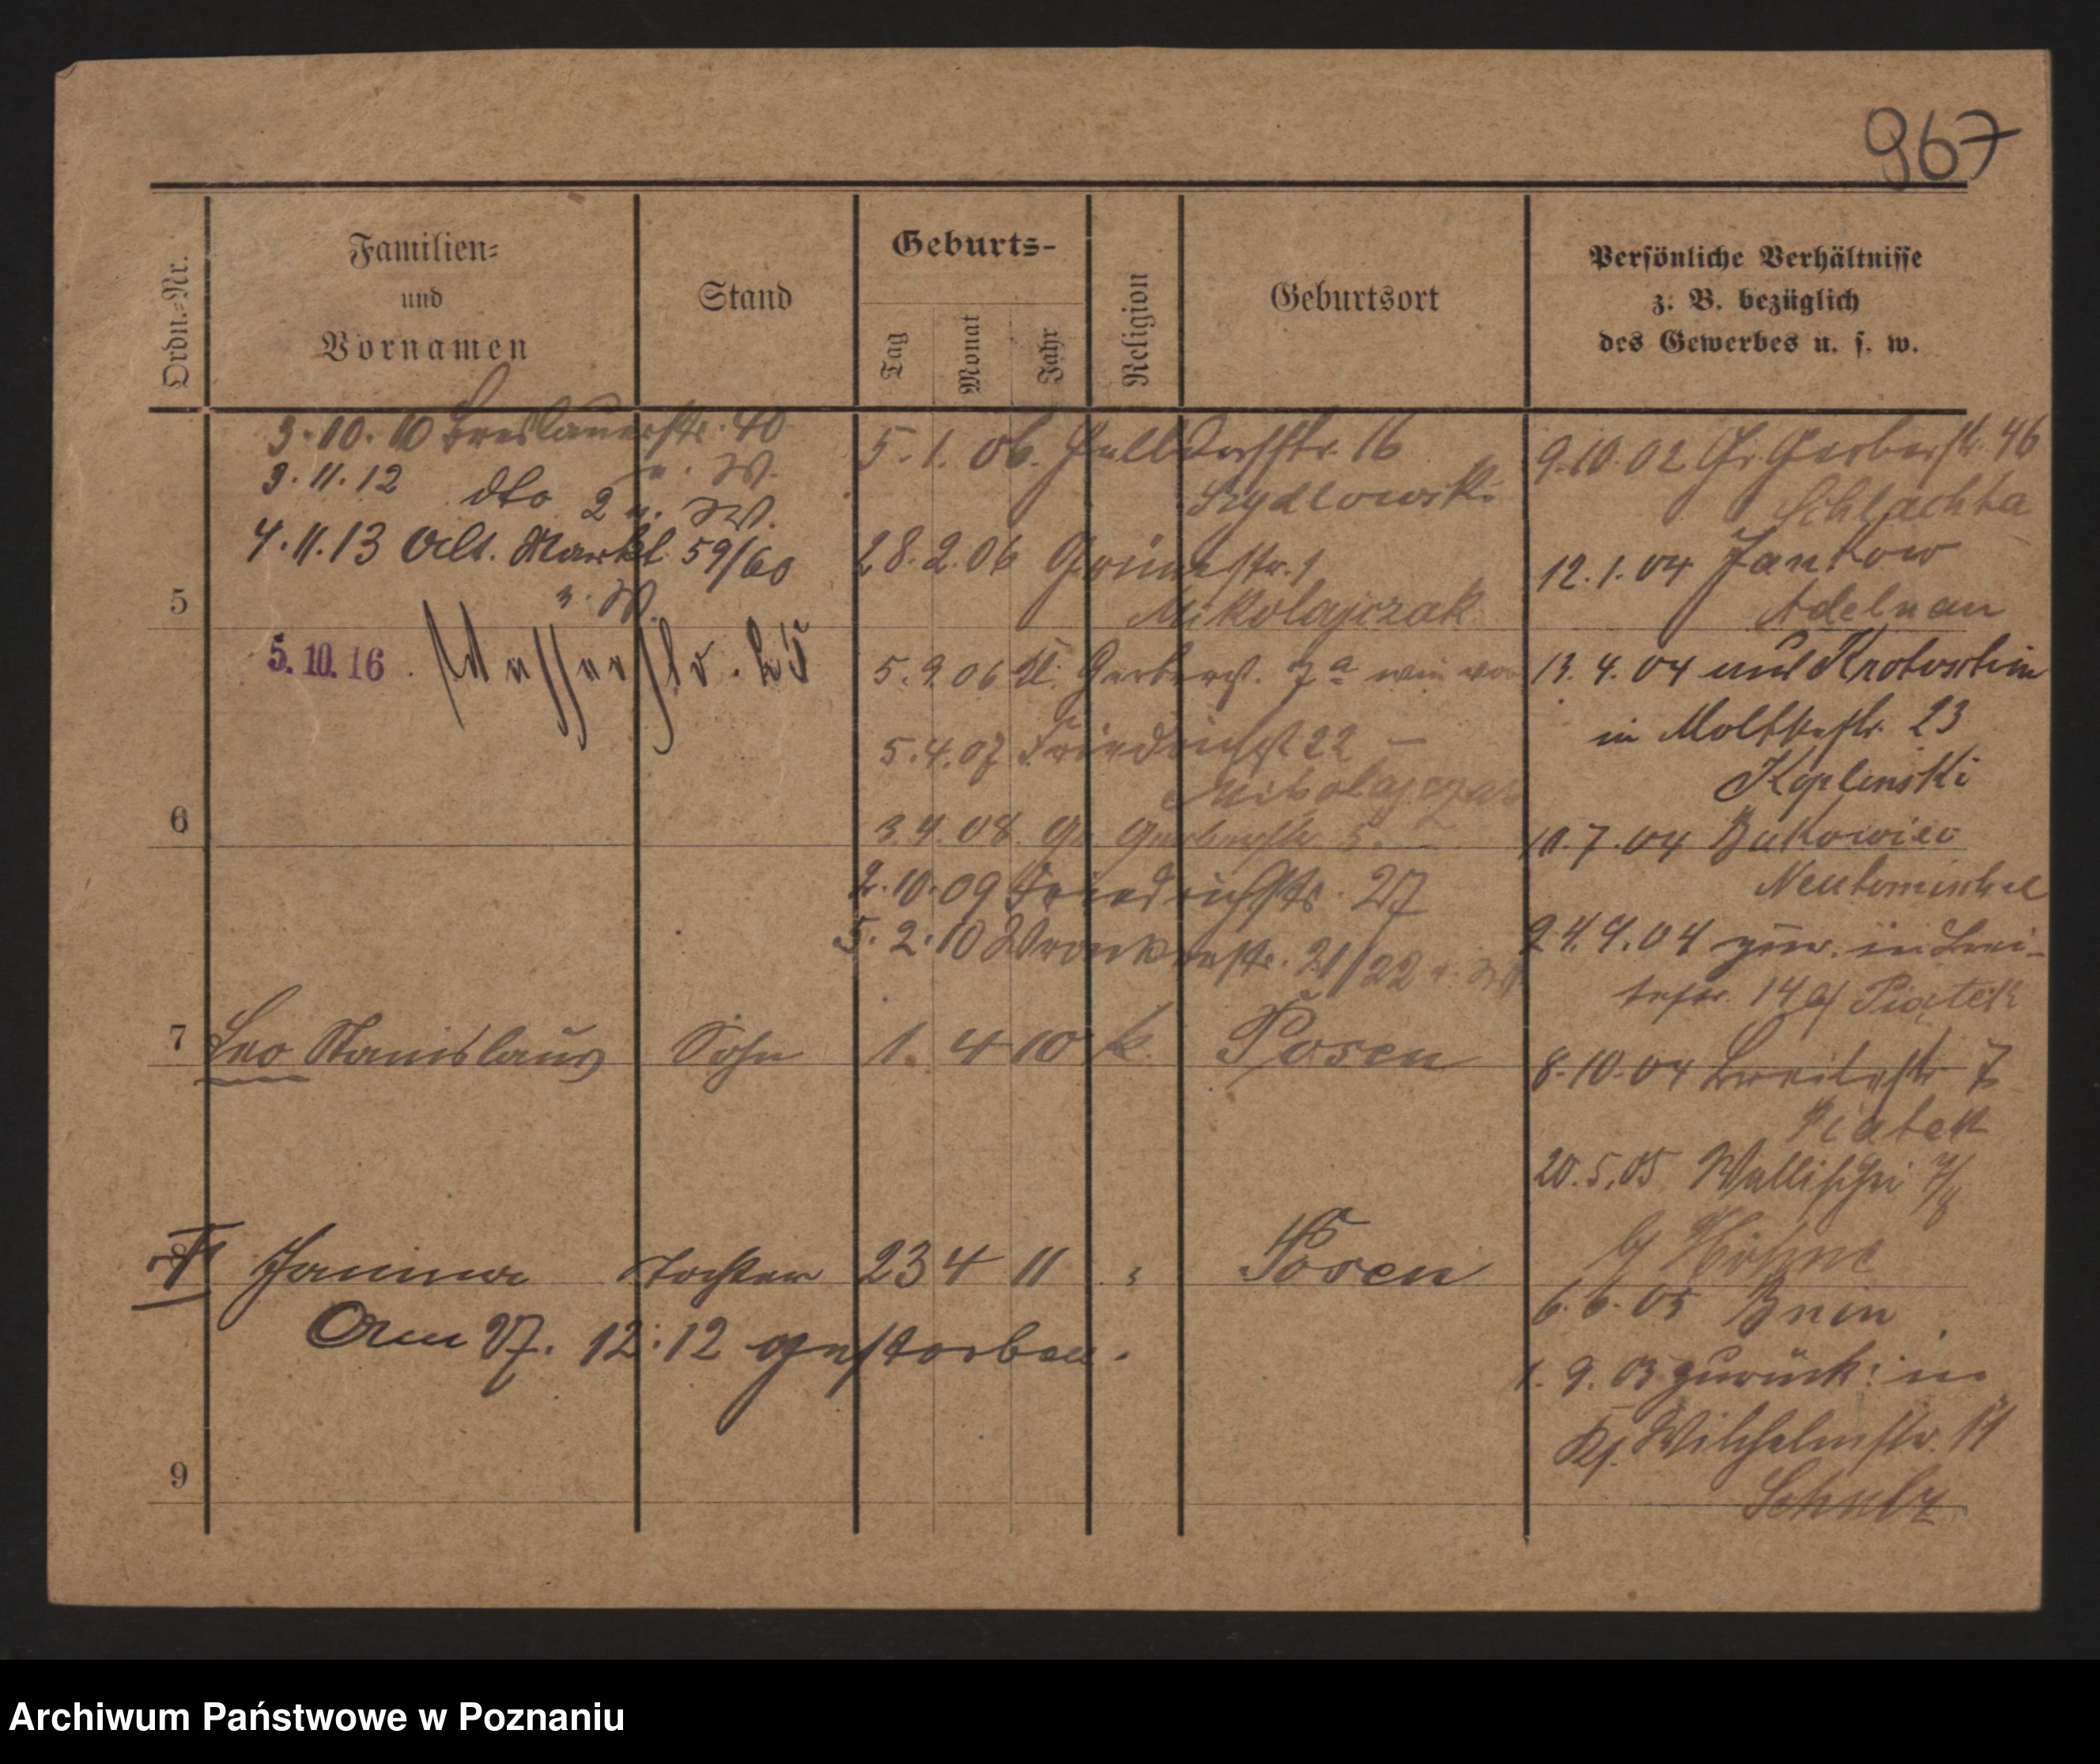 967
Ordn.-Nr.
Familien-
und
Vornamen
Stand
Geburts-
Tag
Monat
Jahr
Religion
Geburtsort
Persönliche Verhältnisse
z. B. bezüglich
des Gewerbes u. s. w.
3.10.10 Breslauerstr. 40
u. W.
3.11.12 dto 2 u. W.
4.11.13 Alt. Markt 59/60
u. W.
5
5.10.16. Wasserstr. 25
6
5.1.06. Halldorfstr. 16
Szydlowski
28.2.06 Grünestr. 1
Mikolajczak
5.9.06 Kl. Gerberst. 7a wie vor
5.4.07 Friedrichst 22 —
Mikolajczak
3.4.08. Gr. Gerberstr 5.
2.10.09 Friedrichstr. 27
5.2.10 Wronkerstr. 21/22 u. W
7 Leo Stanislaus Sohn 1. 4 10 k. Posen
8 Janina Tochter 23 4 11 " Posen
Am 27. 12. 12 gestorben.
9
9.10.02 Gr. Gerberstr. 46
Schlachta
12.1.04 Jankow
Adelnau
13.4.04 aus Krotoschin
in Moltkestr. 23
Koplinski
10.7.04 Bukowiec
Neutomischel
24.9.04 zur. in Brei-
testr. 14 b/ Piatek
8.10.04 Breitestr 7
Piatek
20.5.05 Wallischei 7/8
b/ Höhne
6.6.05 Bnin
1.9.05 zurück: in
Kf. Wilhelmstr. 11
Schulz